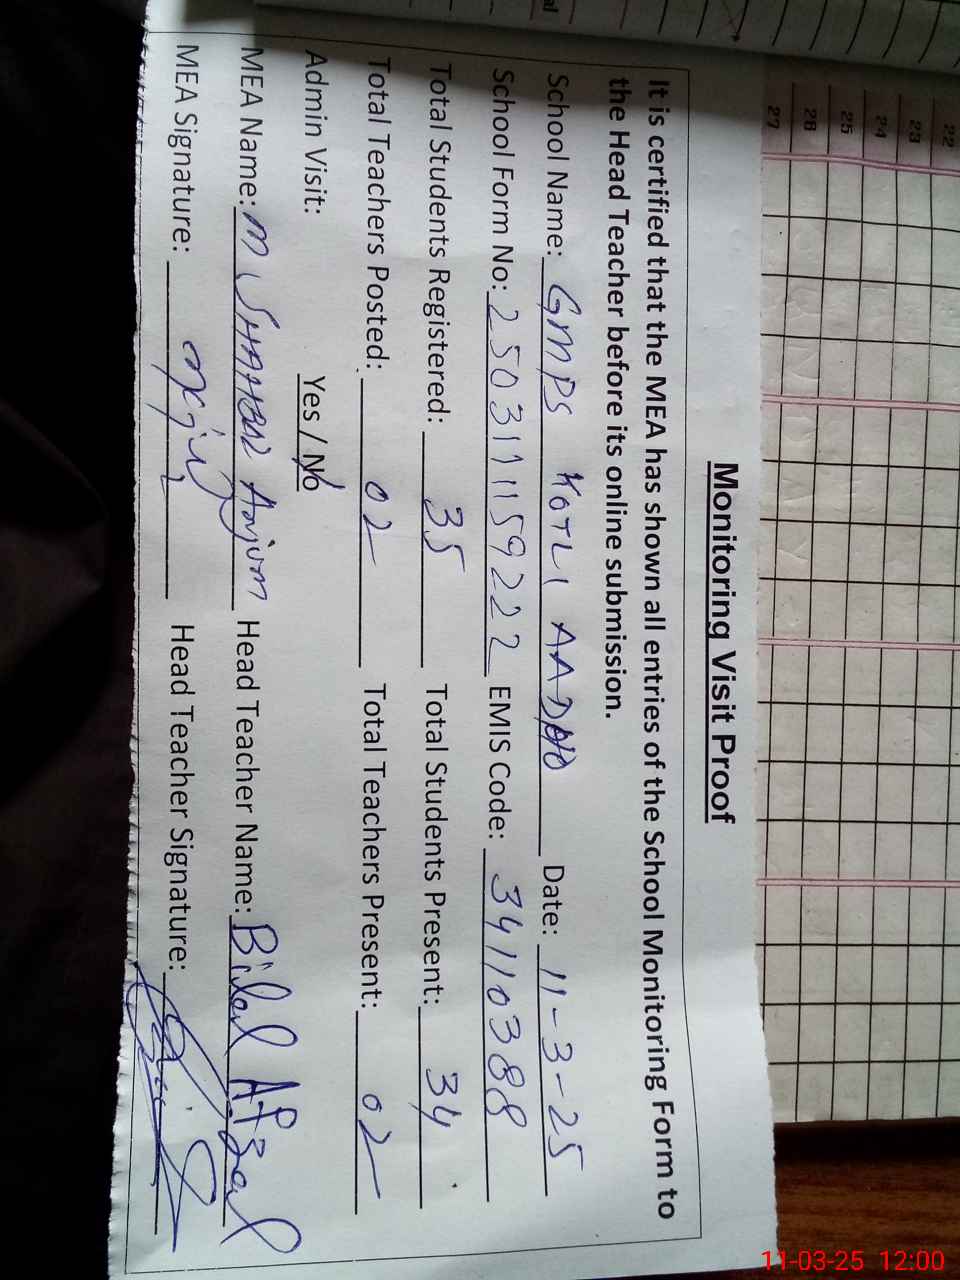 Monitoring Visit Proof
It is certified that the MEA has shown all entries of the School Monitoring Form to
the Head Teacher before its online submission.
School Name: GMPS KOTLI AADOO Date: 11-3-25
School Form No: 25031115922 EMIS Code: 34110388
Total Students Registered: 35 Total Students Present: 34
Total Teachers Posted: 02 Total Teachers Present: 02
Admin Visit: Yes / No
MEA Name: M Anjum Head Teacher Name: Bilal Afzal
MEA Signature: Head Teacher Signature:
22
23
24
25
26
27
al
11-03-25 12:00